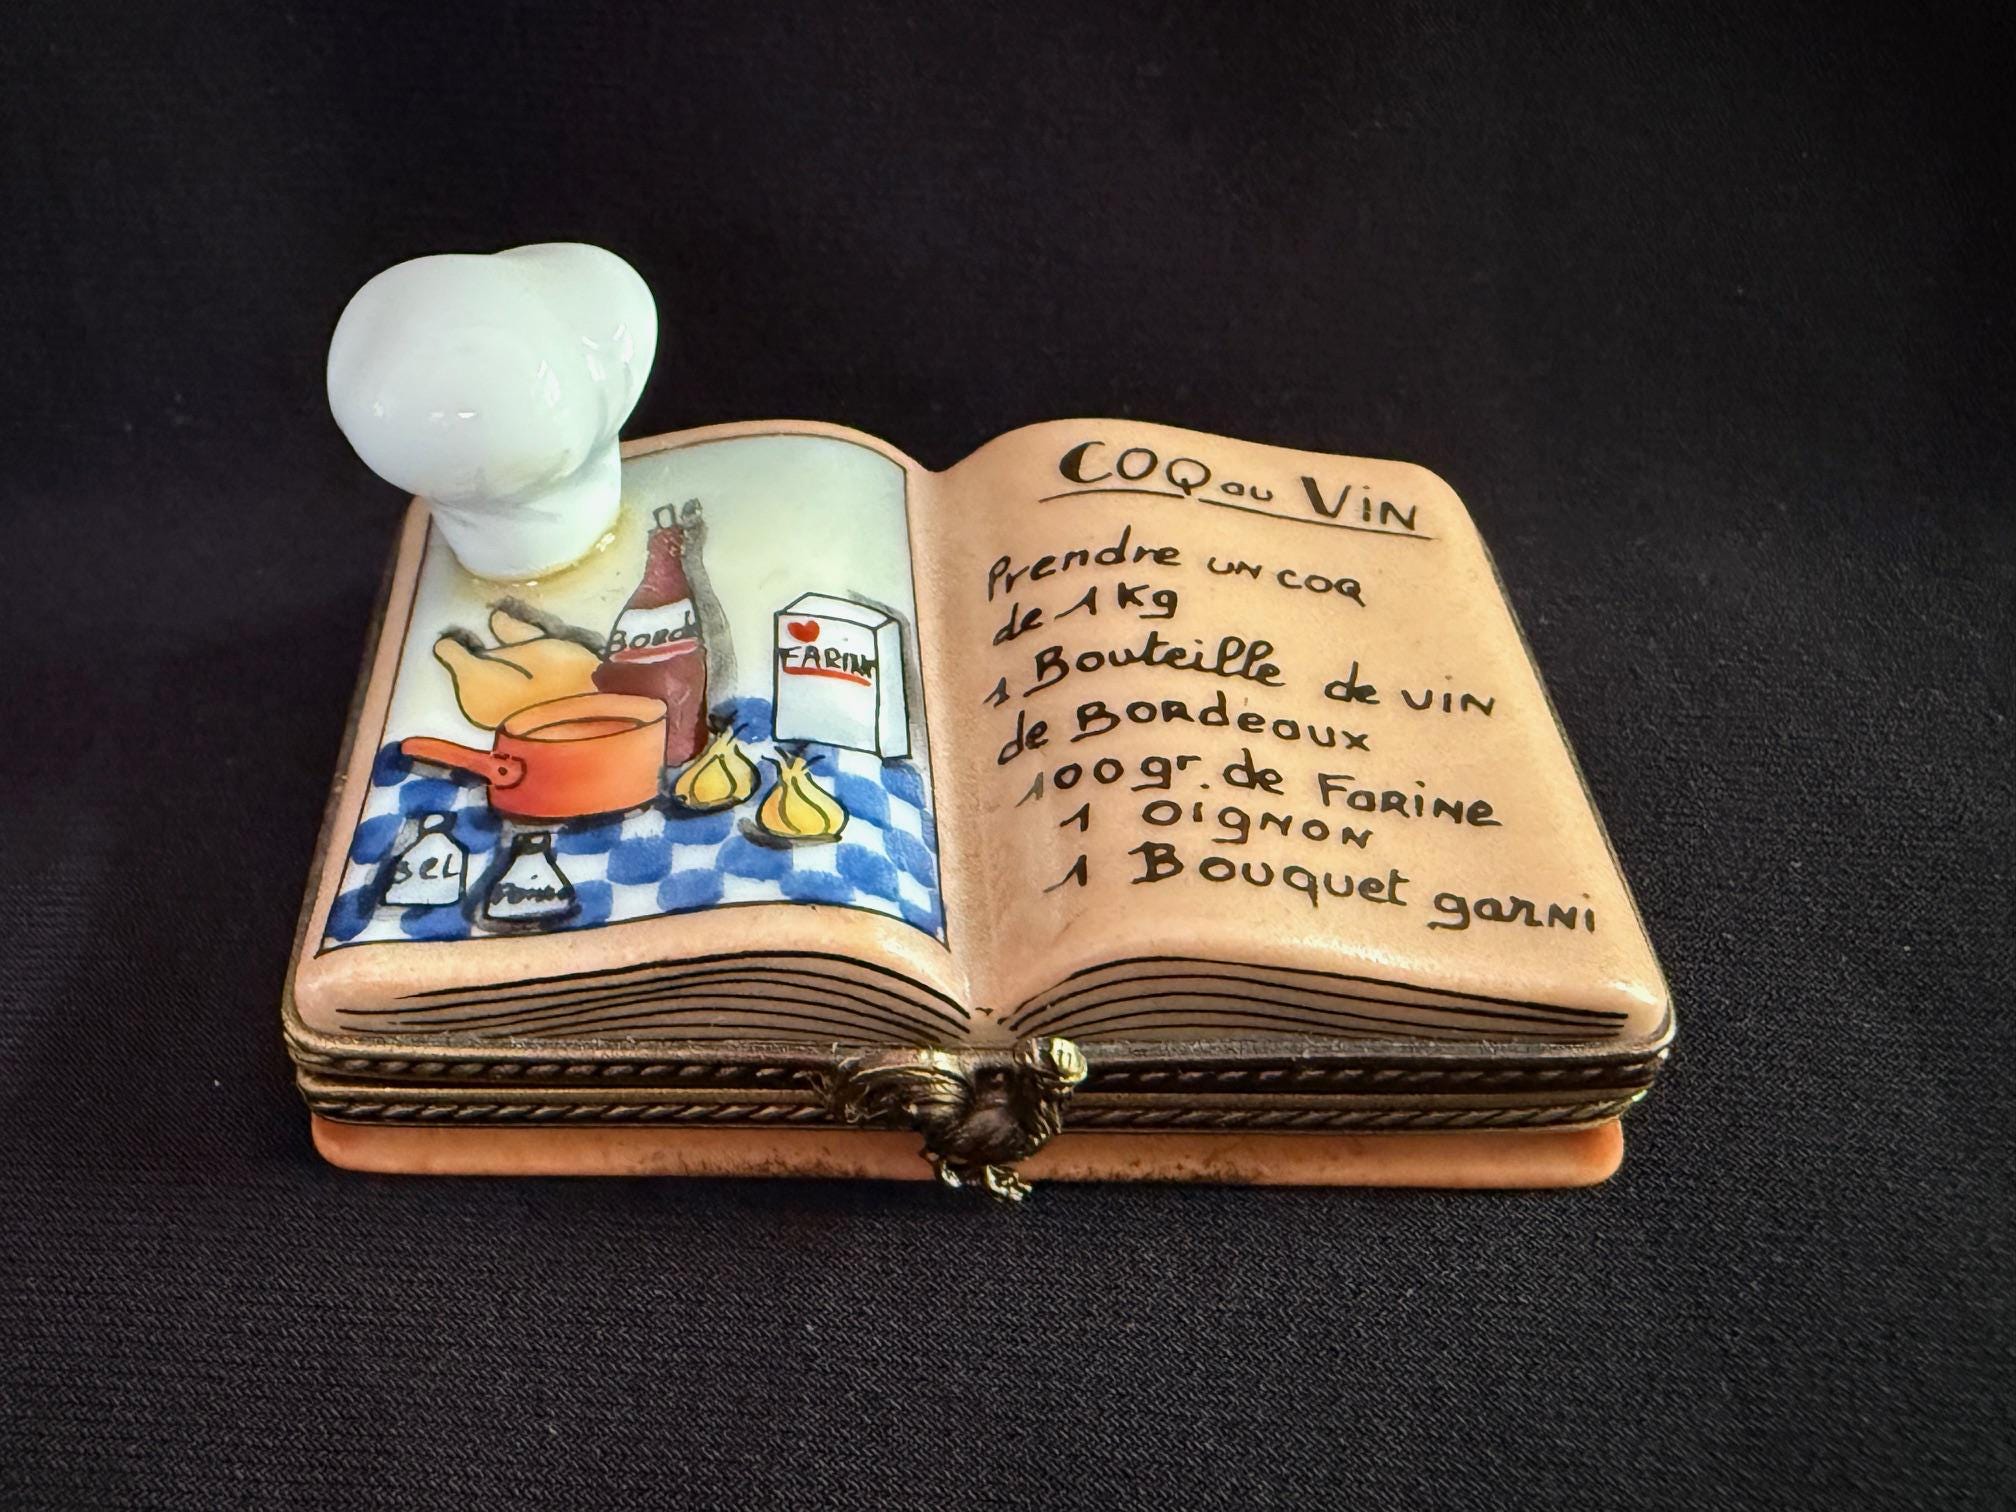 Bord
FARIN
SEL
COQ au Vin
Prendre un coq
de 1 Kg
1 Bouteille de vin
de Bordeaux
100 gr. de Farine
1 Oignon
1 Bouquet garni